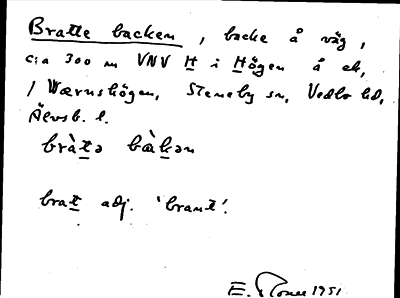 Bratte backen, backe å väg,
c:a 300 m VNV H i Högen å ek,
/ Wærnshögen, Steneby sn, Vedbo hd,
Älvsb. l.
bràt̲ə bàk̲ən
brat̲ adj. 'brant'.
E. 1951